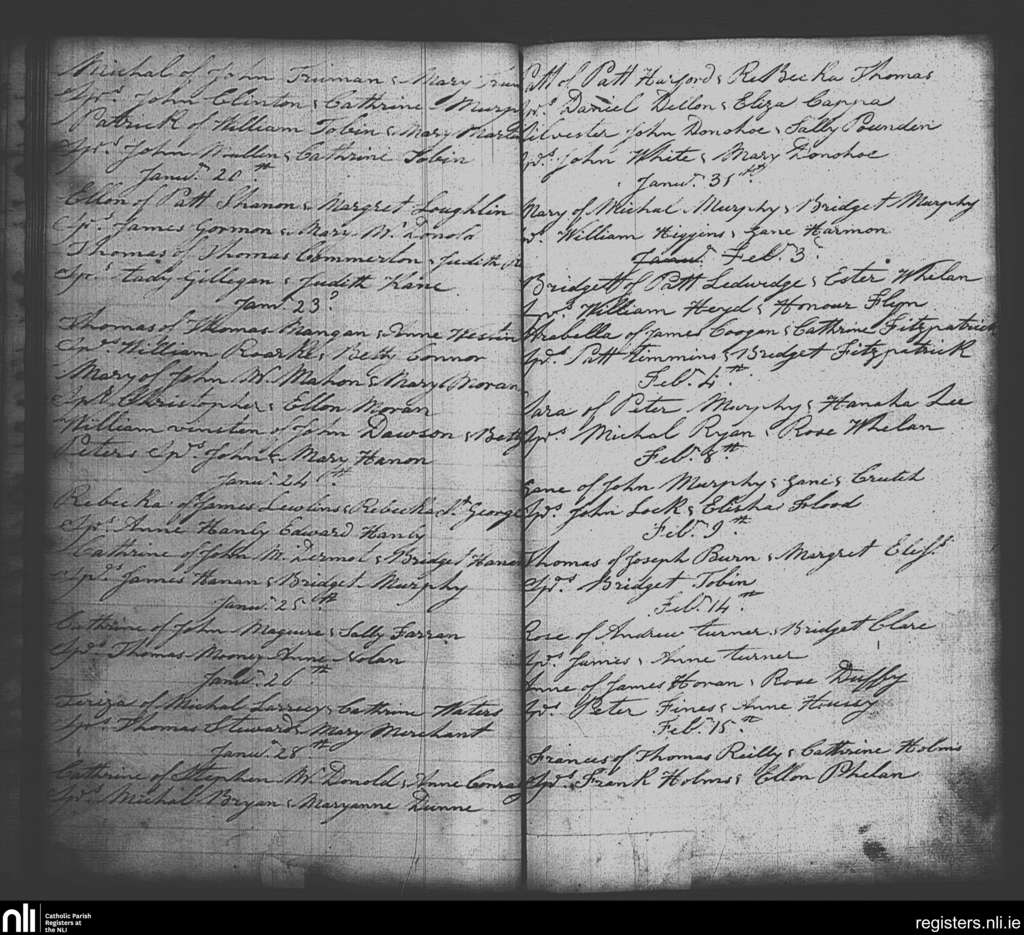 Michal of John Truman & Mary
Spr.s John Clinton & Cathrine Murphy
Patrick of William Tobin & Mary
Spr.s John Mullen & Cathrine Tobin
Janu.y 20th
Ellon of Patt Shanon & Margret Loughlin
Spr.s James Gormon & Mary Mc.Donold
Thomas of Thomas Commerlon & Judith
Spr.s Tady Gillegan & Judith Kane
Janr. 23d
Thomas of Thomas Mangan & Anne
Spr.s William Roarke & Betty Connor
Mary of John Mc. Mahon & Mary Moran
Spr.s Christopher & Ellon Moran
William vinsten of John Dawson & Betty
Peters Spr.s John & Mary Hanon
Janu.y 24th
Rebecka of James Lewlins & Rebecka St George
Spr.s Anne Hanly Edward Hanly
Cathrine of John Mc.Dermot & Bridget
Spr.s James Hanan & Bridget Murphy
Janu.y 25th
Cathrine of John Maguire & Sally Farran
Spr.s Thomas Mooney Anne Nolan
Janu.y 26th
Teriza of Michal & Cathrine Waters
Spr.s Thomas Steward & Mary Merchant
Janu.y 28th
Cathrine of Stephen Mc.Donold & Anne Conray
Spr.s Michal Bryan & Maryanne Dunne
Patt of Patt Harford & ReBecka Thomas
Spr.s Daniel Dellon & Eliza Cappa
Silvester John Donohoe & Sally Pounden
Spr.s John White & Mary Donohoe
Janu.y 31st
Mary of Michal Murphy & Bridget Murphy
Spr.s William Higgins & Jane Harmon
Feb.y 3d
Bridgett of Patt Ledwidge & Ester Whelan
Spr.s William Heyd & Honour Flyn
Arabella of James Coogan & Cathrine Fitzpatrick
Spr.s Patt Timmins & Bridget Fitzpatrick
Feb.y 4th
Sara of Peter Murphy & Hanaha Lee
Spr.s Michal Ryan & Rose Whelan
Feb.y 8th
Jane of John Murphy & Jane Crutch
Spr.s John Lock & Elisha Flood
Feb.y 9th
Thomas of Joseph Burn & Margret
Spr.s Bridget Tobin
Feb.y 14th
Rose of Andrew Turner & Bridget Clare
Spr.s James & Anne Turner
Anne of James Horan & Rose Duffy
Spr.s Peter Fines & Anne
Feb.y 15th
Frances of Thomas Reilly & Cathrine Holms
Spr.s Frank Holms & Ellon Phelan
nli
Catholic Parish
Registers at
the NLI
registers.nli.ie